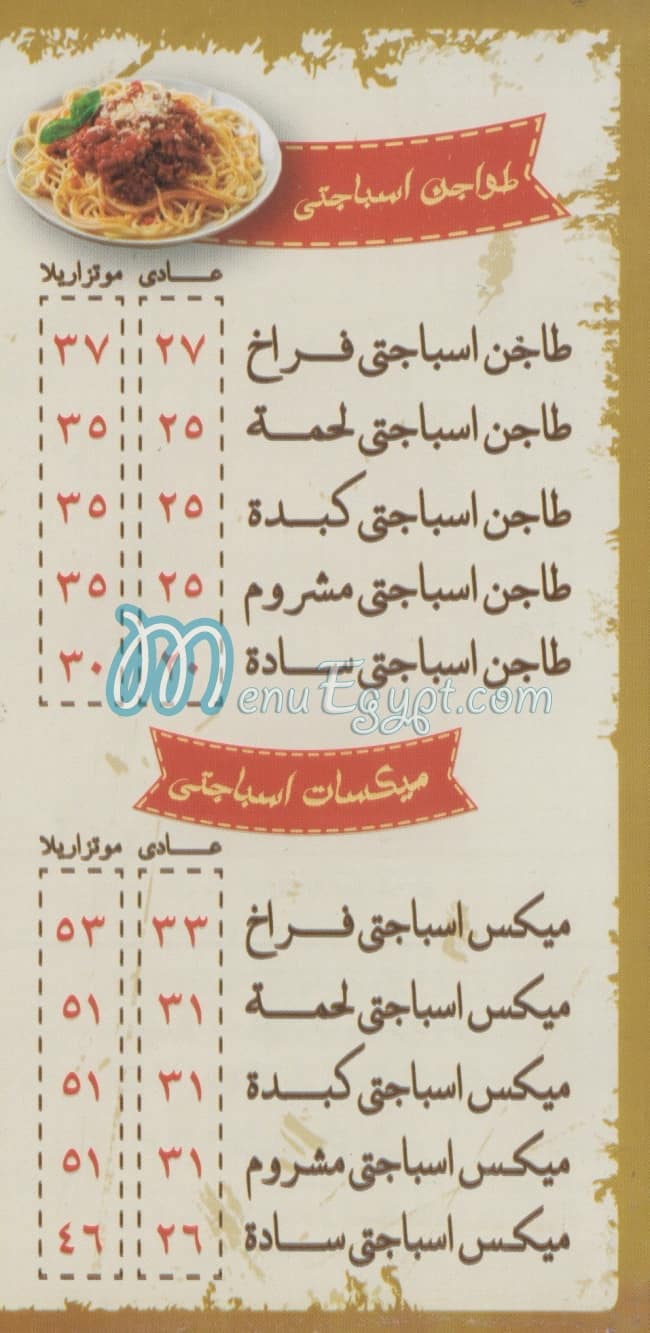 طواجن اسباجتى
عادى موتزاريلا
طاجن اسباجتى فراخ ٢٧ ٣٧
طاجن اسباجتى لحمة ٢٥ ٣٥
طاجن اسباجتى كبدة ٢٥ ٣٥
طاجن اسباجتى مشروم ٢٥ ٣٥
طاجن اسباجتى سادة ٢٠ ٣٠
MenuEgypt.com
ميكسات اسباجتى
عادى موتزاريلا
ميكس اسباجتى فراخ ٣٣ ٥٣
ميكس اسباجتى لحمة ٣١ ٥١
ميكس اسباجتى كبدة ٣١ ٥١
ميكس اسباجتى مشروم ٣١ ٥١
ميكس اسباجتى سادة ٢٦ ٤٦